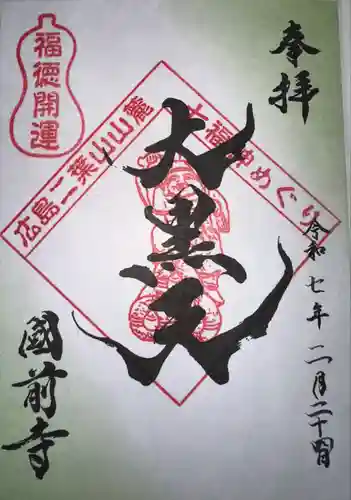 奉拝
福徳開運
広島二葉山山麓
七福神めぐり
大黒天
令和七年二月二十四日
國前寺